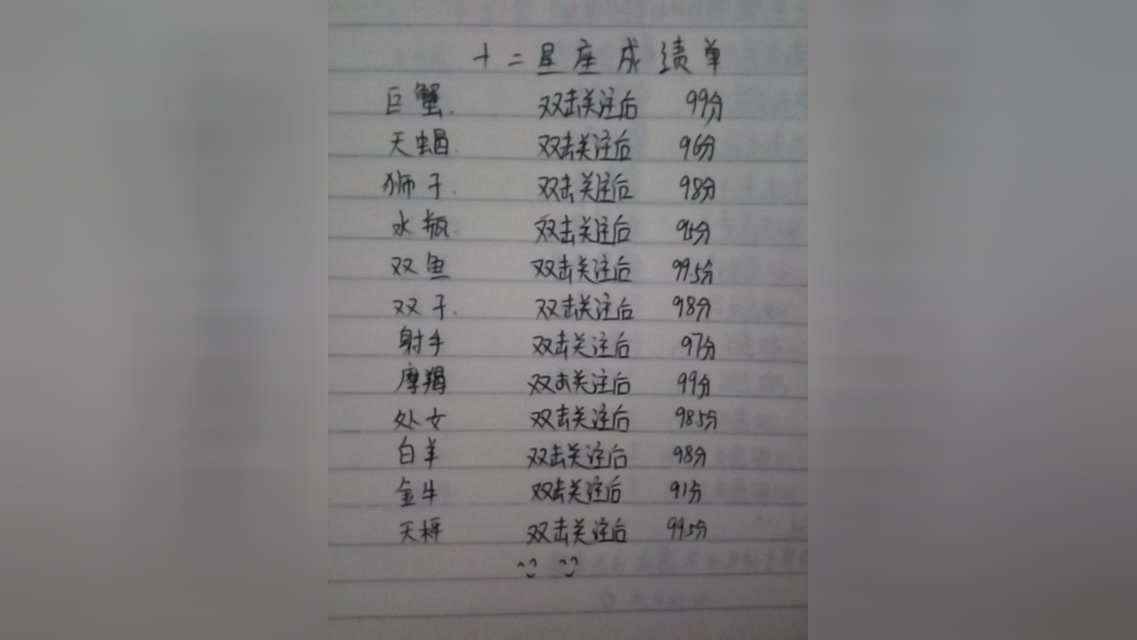 十二星座成绩单
巨蟹. 双击关注后 99分
天蝎. 双击关注后 96分
狮子. 双击关注后 98分
水瓶. 双击关注后 95分
双鱼 双击关注后 99.5分
双子. 双击关注后 98分
射手 双击关注后 97分
摩羯 双击关注后 99分
处女 双击关注后 98.5分
白羊 双击关注后 98分
金牛 双击关注后 91分
天秤 双击关注后 99.5分